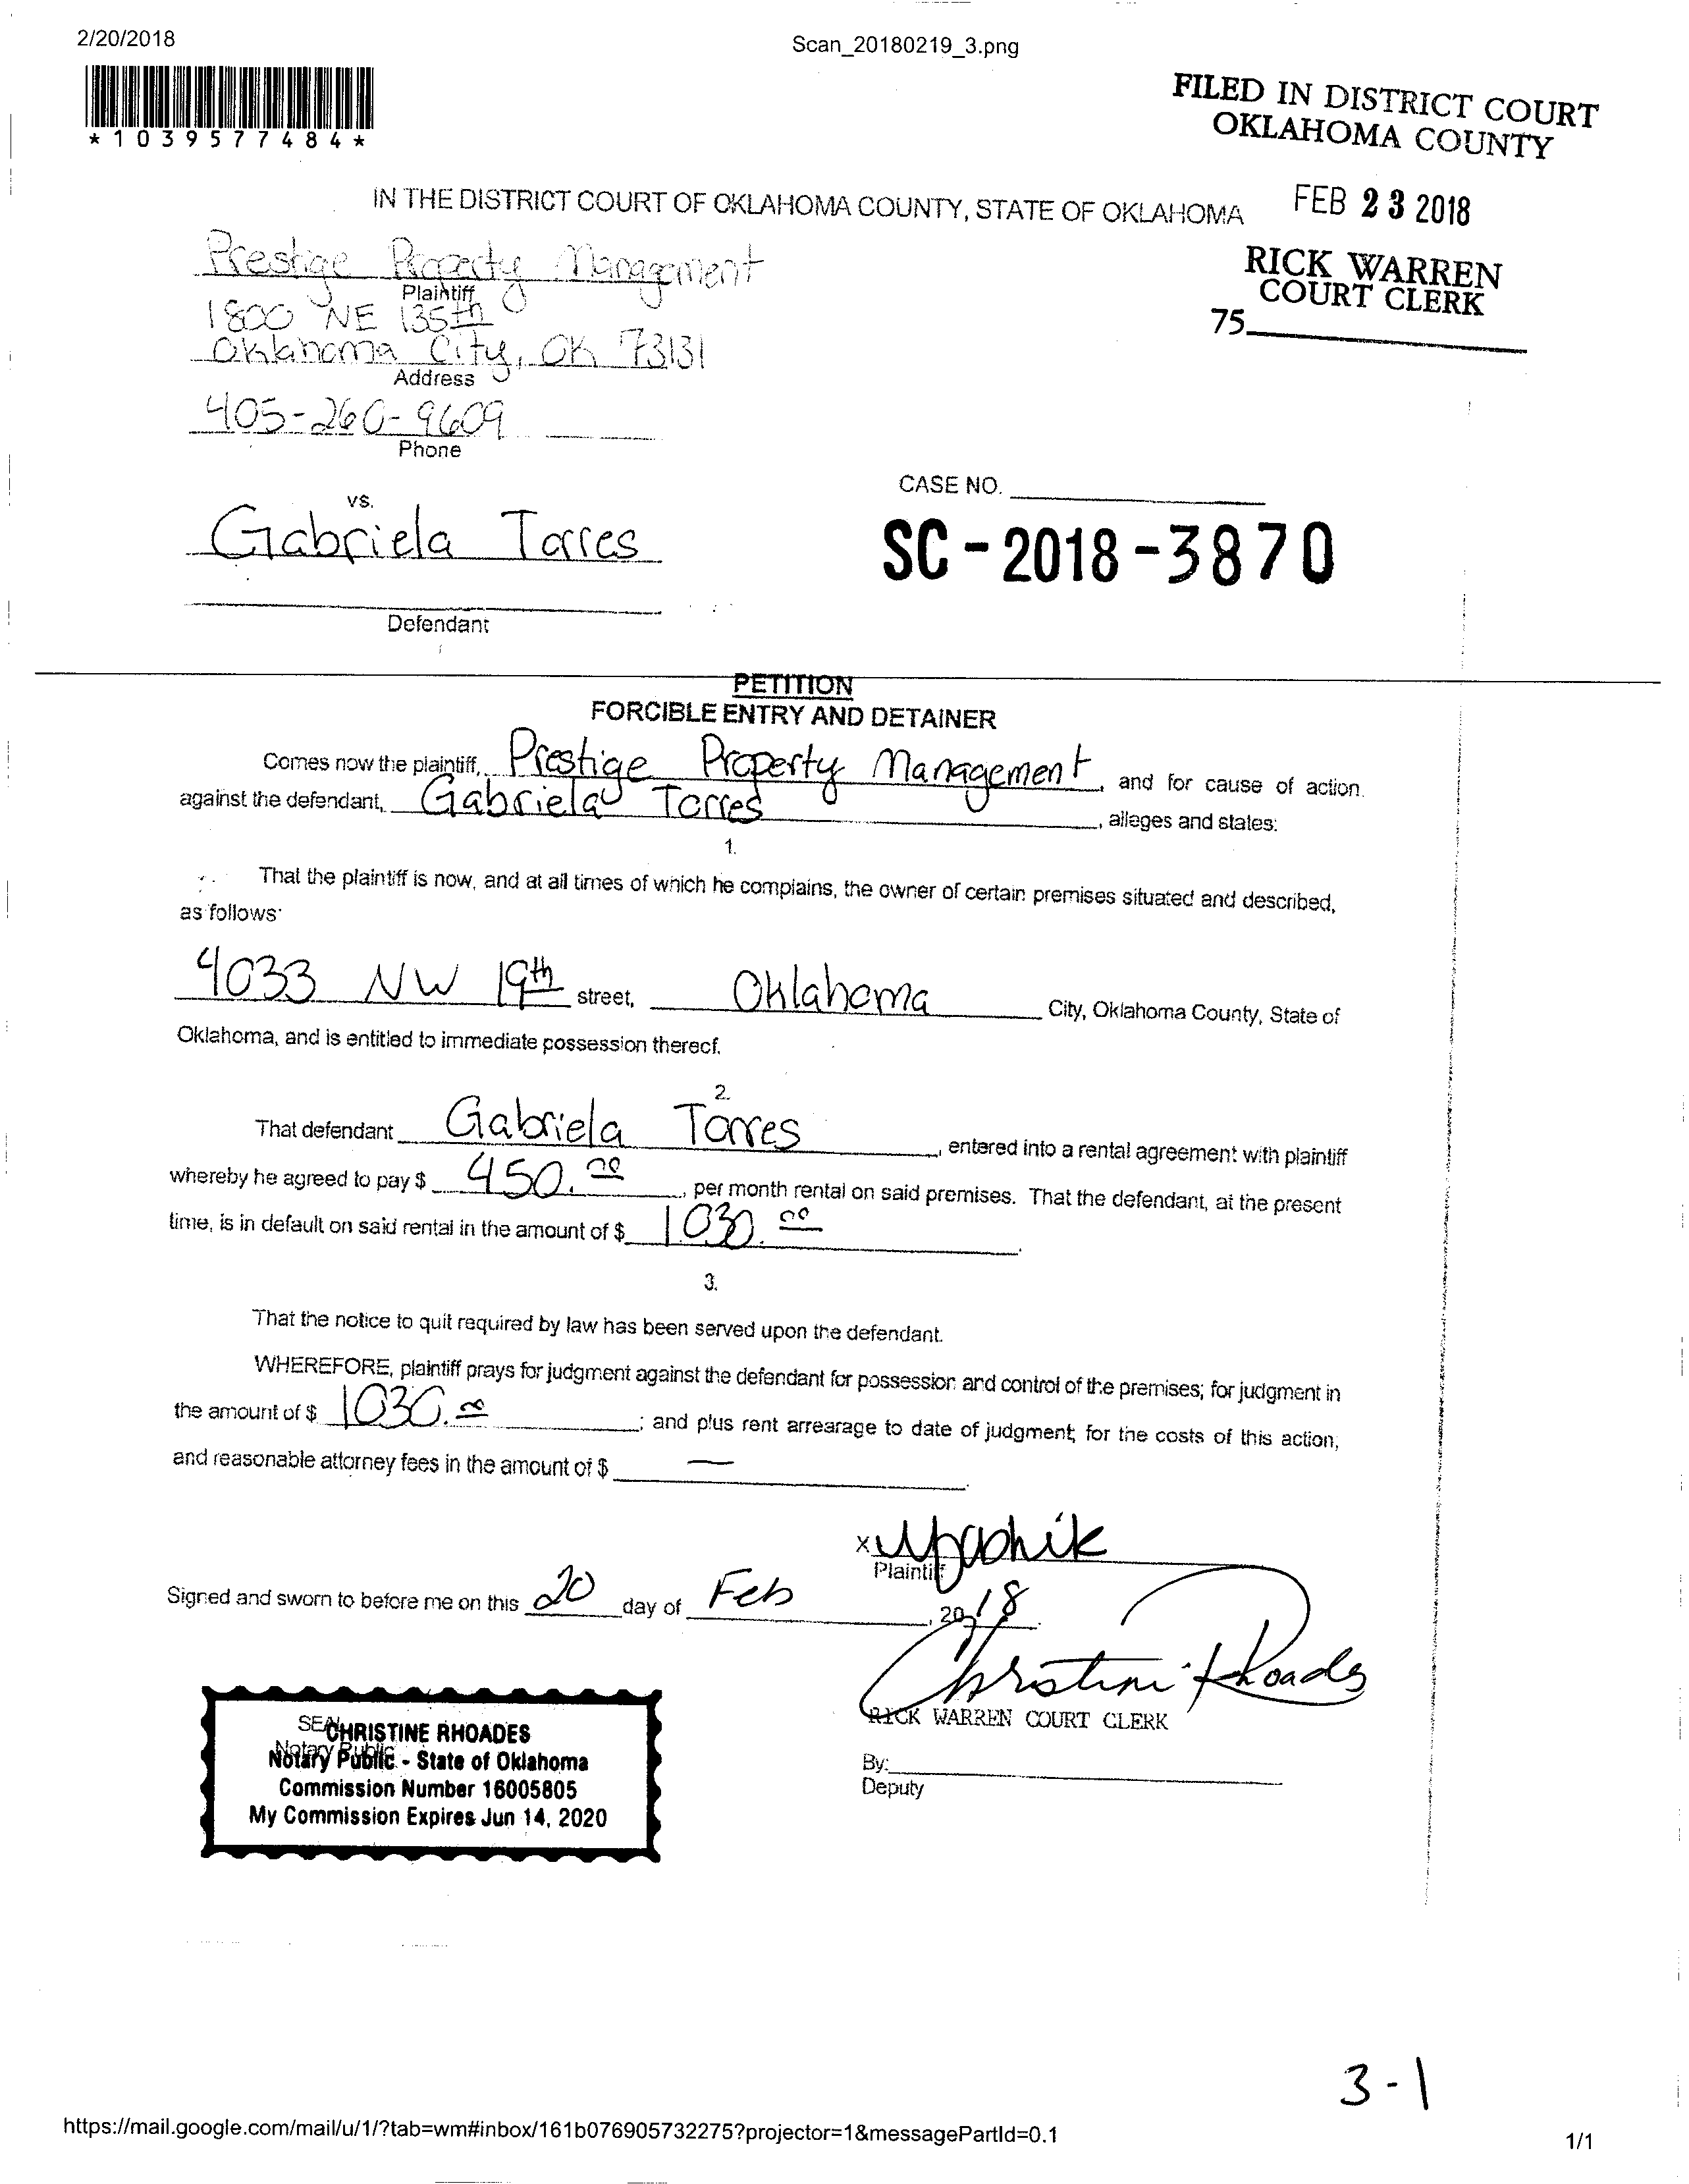 2/20/2018
Scan_20180219_3.png
*1039577484*
FILED IN DISTRICT COURT
OKLAHOMA COUNTY
IN THE DISTRICT COURT OF OKLAHOMA COUNTY, STATE OF OKLAHOMA
FEB 23 2018
RICK WARREN
COURT CLERK
75
Prestige Property Management
Plaintiff
1800 NE 135th
Oklahoma City, OK 73131
Address
405-260-9609
Phone
vs.
CASE NO.
Gabriela Torres
SC-2018-3870
Defendant
PETITION
FORCIBLE ENTRY AND DETAINER
Comes now the plaintiff, Prestige Property Management, and for cause of action
against the defendant, Gabriela Torres, alleges and states:
1.
That the plaintiff is now, and at all times of which he complains, the owner of certain premises situated and described,
as follows:
4033 NW 19th street, Oklahoma City, Oklahoma County, State of
Oklahoma, and is entitled to immediate possession thereof.
2.
That defendant Gabriela Torres, entered into a rental agreement with plaintiff
whereby he agreed to pay $ 450.00, per month rental on said premises. That the defendant, at the present
time, is in default on said rental in the amount of $ 1030.00.
3.
That the notice to quit required by law has been served upon the defendant.
WHEREFORE, plaintiff prays for judgment against the defendant for possession and control of the premises; for judgment in
the amount of $ 1030.00; and plus rent arrearage to date of judgment; for the costs of this action;
and reasonable attorney fees in the amount of $ —.
x
Plaintiff
Signed and sworn to before me on this 20 day of Feb, 2018.
Christine Rhoades
RICK WARREN COURT CLERK
SEAL
CHRISTINE RHOADES
Notary Public
Notary Public - State of Oklahoma
Commission Number 16005805
My Commission Expires Jun 14, 2020
By:
Deputy
3-1
https://mail.google.com/mail/u/1/?tab=wm#inbox/161b076905732275?projector=1&messagePartId=0.1
1/1